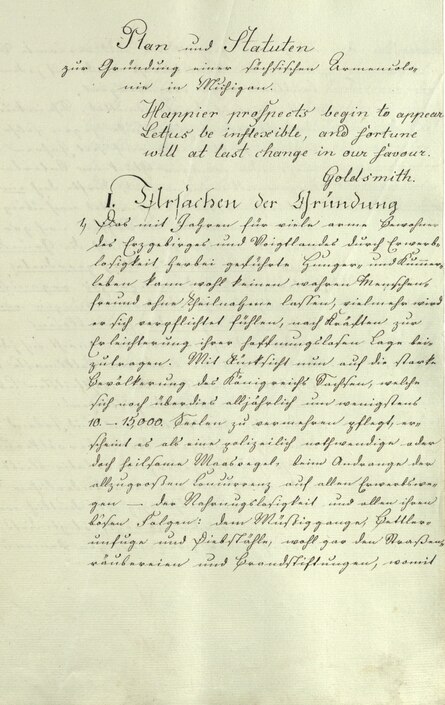 Plan und Statuten
zur Gründung einer sächsischen Armencolo-
nie in Michigan.
Happier prospects begin to appear
Let us be inflexible, and fortune
will at last change in our favour.
Goldsmith.
I. Ursachen der Gründung
1, Das mit Jahren für viele arme Bewohner
des Erzgebirges und Voigtlandes durch Erwerb-
losigkeit herbei geführte Hunger- und Kummer-
leben kann wohl keinen wahren Menschen-
freund ohne Theilnahme lassen, vielmehr wird
er sich verpflichtet fühlen, nach Kräften zur
Erleichterung ihrer hoffnungslosen Lage bei-
zutragen. Mit Rücksicht nun auf die starke
Bevölkerung des Königreichs Sachsen, welche
sich noch überdies alljährlich um wenigstens
10-15000. Seelen zu vermehren pflegt, er-
scheint es als eine polizeilich nothwendige oder
doch heilsame Maasregel, beim Andrange der
allzugroßen Concurrenz auf allen Erwerbswe-
gen - der Nahrungslosigkeit und allen ihren
bösen Folgen: dem Müßiggange, Bettler-
unfuge und Diebstähle, wohl gar den Straßen-
räubereien und Brandstiftungen, womit